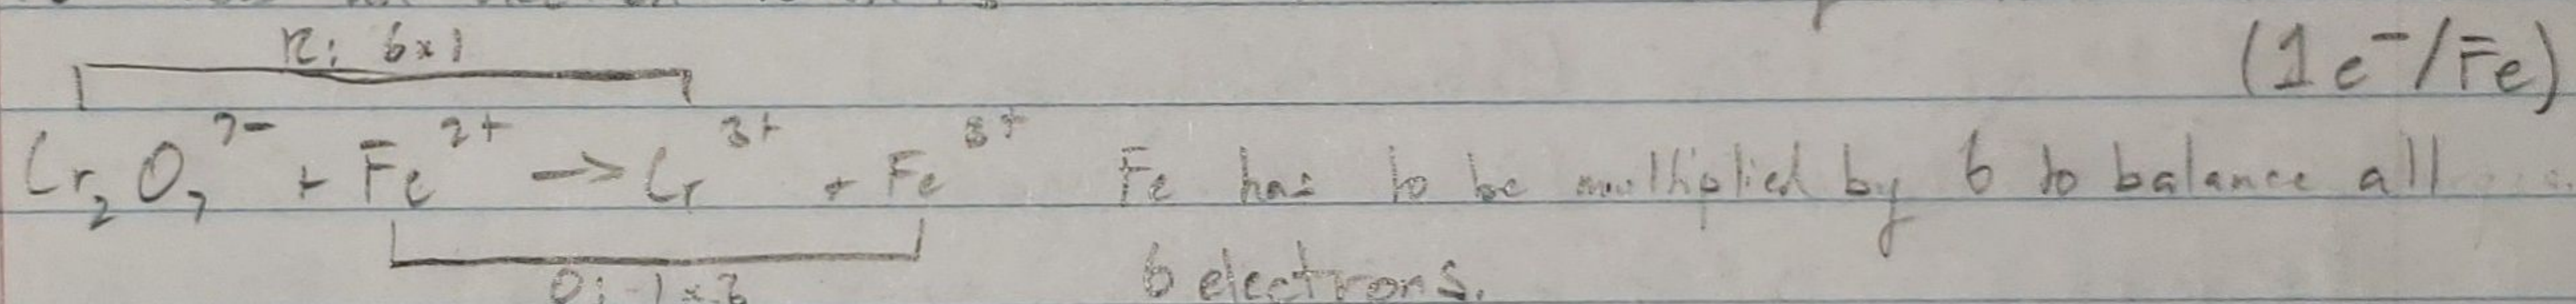 R: 6×1
(1e⁻/Fe)
Cr₂O₇²⁻ + Fe²⁺ → Cr³⁺ + Fe³⁺ Fe has to be multiplied by 6 to balance all
6 electrons.